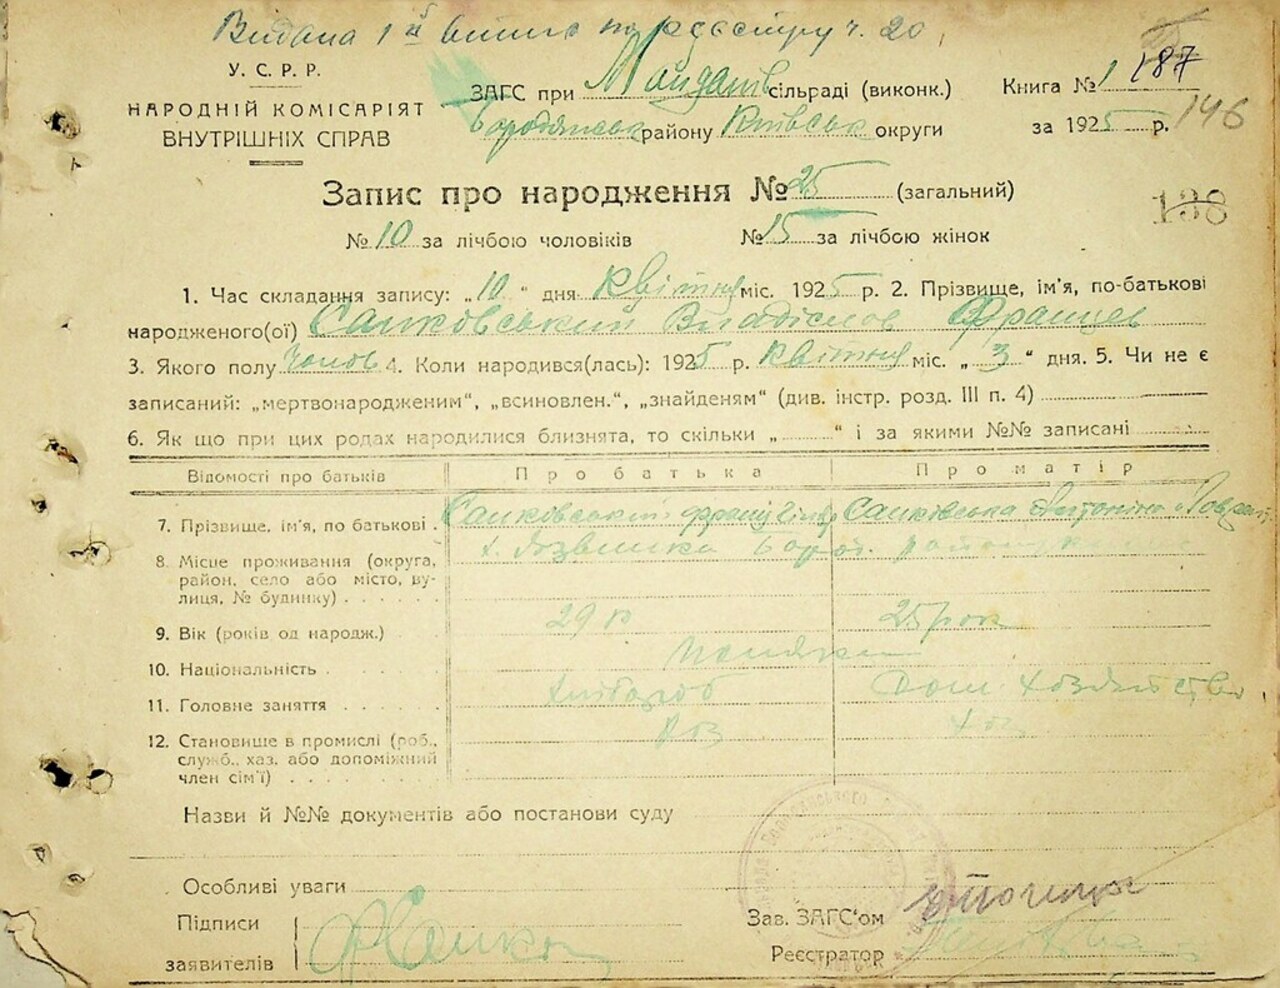 Видана 1й витяг по реєстру ч. 20
У. С. Р. Р.
НАРОДНІЙ КОМІСАРІЯТ
ВНУТРІШНІХ СПРАВ
ЗАГС при Майданів сільраді (виконк.)
Бородянськ району Київськ округи
Книга № 1 187
за 1925 р. 146
Запис про народження № 25 (загальний)
138
№ 10 за лічбою чоловіків № 15 за лічбою жінок
1. Час складання запису: „10" дня Квітня міс. 1925 р. 2. Прізвище, ім'я, по-батькові
народженого(ої) Санковський Владіслов Францев
3. Якого полу Чолов 4. Коли народився(лась): 1925 р. Квітня міс. „3" дня. 5. Чи не є
записаний: „мертвонародженим", „всиновлен.", „знайденям" (див. інстр. розд. III п. 4)
6. Як що при цих родах народилися близнята, то скільки „ " і за якими №№ записані
Відомості про батьків Про батька Про матір
7. Прізвище, ім'я, по батькові Санковський Франц Санковська Антоніна
8. Місце проживання (округа,
район, село або місто, ву-
лиця, № будинку)
9. Вік (років од народж.) 29 р 25 рок
10. Національність Поляки
11. Головне заняття Хлібороб Дом Хозяйство
12. Становище в промислі (роб.,
служб., хаз. або допоміжний
член сім'ї) Хоз
Назви й №№ документів або постанови суду
Особливі уваги
Підписи
заявителів
Зав. ЗАГС'ом
Реєстратор